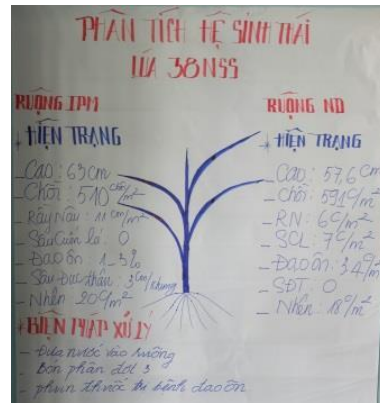 PHÂN TÍCH HỆ SINH THÁI
LÚA 38NSS
RUỘNG IPM
+ HIỆN TRẠNG
- Cao: 63cm
- Chồi: 510 chồi/m²
- Rầy Nâu: 11 con/m²
- Sâu Cuốn lá: 0
- Đạo ôn 1-3%
- Sâu Đục thân: 3 con/khung
- Nhện 20c/m²
+ BIỆN PHÁP XỬ LÝ
- Đưa nước vào ruộng
- Bón phân đợt 3
- phun thuốc trị bệnh đạo ôn
RUỘNG ND
+ HIỆN TRẠNG
- Cao: 57,6 cm
- Chồi: 591c/m²
- RN: 6c/m²
- SCL: 7c/m²
- Đạo ôn: 34c/m²
- SĐT: 0
- Nhện: 18c/m²